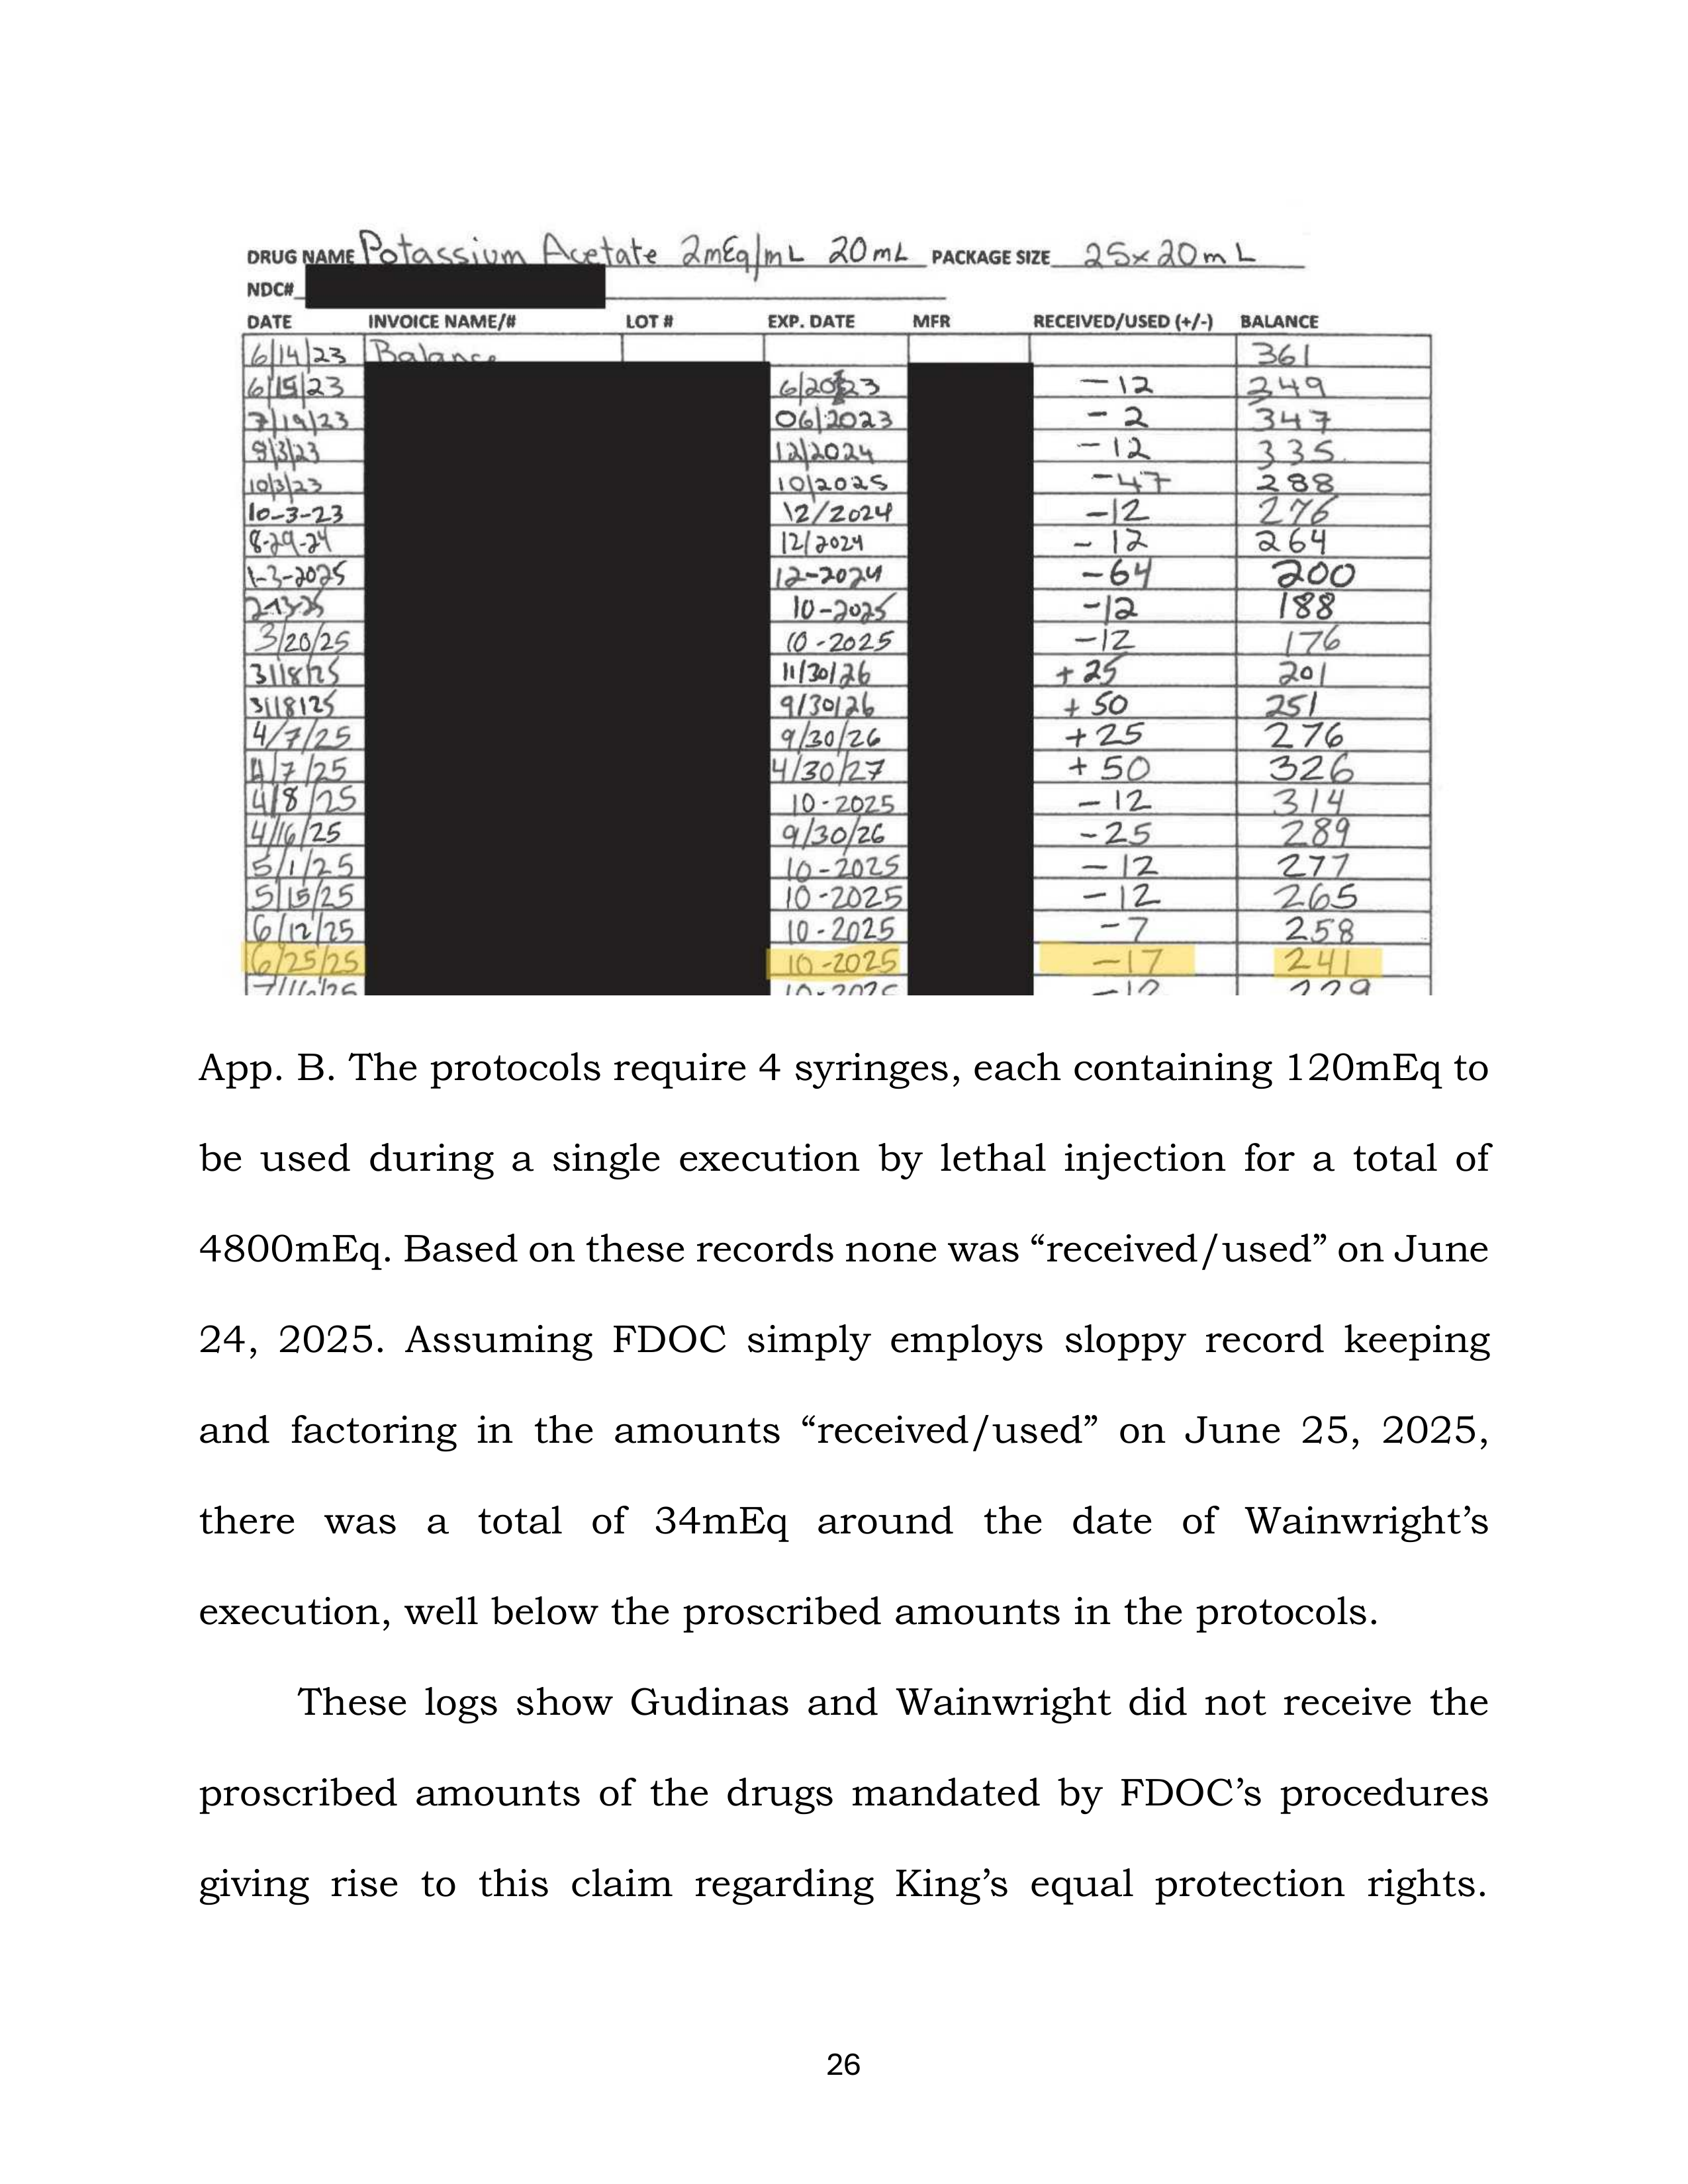 DRUG NAME Potassium Acetate 2mEq/mL 20mL PACKAGE SIZE 25x20mL
NDC#
DATE INVOICE NAME/# LOT # EXP. DATE MFR RECEIVED/USED (+/-) BALANCE
6/14/23 Balance 361
6/15/23 6/2023 -12 349
7/19/23 06/2023 -2 347
9/3/23 12/2024 -12 335
10/3/23 10/2025 -47 288
10-3-23 12/2024 -12 276
8-29-24 12/2024 -12 264
1-3-2025 12-2024 -64 200
2-13-25 10-2025 -12 188
3/20/25 10-2025 -12 176
3/18/25 11/30/26 +25 201
3/18/25 9/30/26 +50 251
4/7/25 9/30/26 +25 276
4/7/25 4/30/27 +50 326
4/8/25 10-2025 -12 314
4/16/25 9/30/26 -25 289
5/1/25 10-2025 -12 277
5/15/25 10-2025 -12 265
6/12/25 10-2025 -7 258
6/25/25 10-2025 -17 241
7/16/25 10-2025 -12 229
App. B. The protocols require 4 syringes, each containing 120mEq to
be used during a single execution by lethal injection for a total of
4800mEq. Based on these records none was “received/used” on June
24, 2025. Assuming FDOC simply employs sloppy record keeping
and factoring in the amounts “received/used” on June 25, 2025,
there was a total of 34mEq around the date of Wainwright’s
execution, well below the proscribed amounts in the protocols.
These logs show Gudinas and Wainwright did not receive the
proscribed amounts of the drugs mandated by FDOC’s procedures
giving rise to this claim regarding King’s equal protection rights.
26